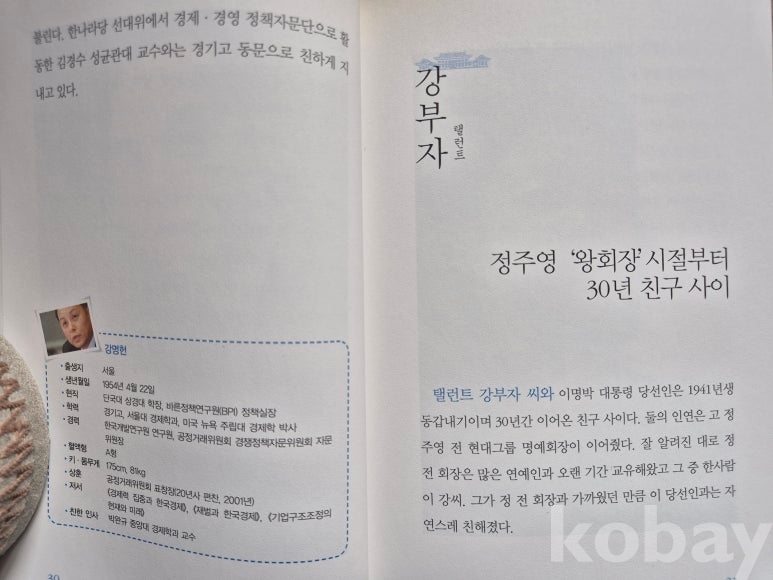 불린다. 한나라당 선대위에서 경제·경영 정책자문단으로 활
동한 김경수 성균관대 교수와는 경기고 동문으로 친하게 지
내고 있다.
강명헌
· 출생지 서울
· 생년월일 1954년 4월 22일
· 현직 단국대 상경대 학장, 바른정책연구원(BPI) 정책실장
· 학력 경기고, 서울대 경제학과, 미국 뉴욕 주립대 경제학 박사
· 경력 한국개발연구원 연구원, 공정거래위원회 경쟁정책자문위원회 자문
위원장
· 혈액형 A형
· 키·몸무게 175cm, 81kg
· 상훈 공정거래위원회 표창장(20년사 편찬, 2001년)
· 저서 《경제력 집중과 한국경제》, 《재벌과 한국경제》, 《기업구조조정의
현재와 미래》
· 친한 인사 박완규 중앙대 경제학과 교수
30
강부자
탤런트
정주영 ‘왕회장’ 시절부터
30년 친구 사이
탤런트 강부자 씨와 이명박 대통령 당선인은 1941년생
동갑내기이며 30년간 이어온 친구 사이다. 둘의 인연은 고 정
주영 전 현대그룹 명예회장이 이어줬다. 잘 알려진 대로 정
전 회장은 많은 연예인과 오랜 기간 교유해왔고 그 중 한사람
이 강씨. 그가 정 전 회장과 가까웠던 만큼 이 당선인과는 자
연스레 친해졌다.
kobay